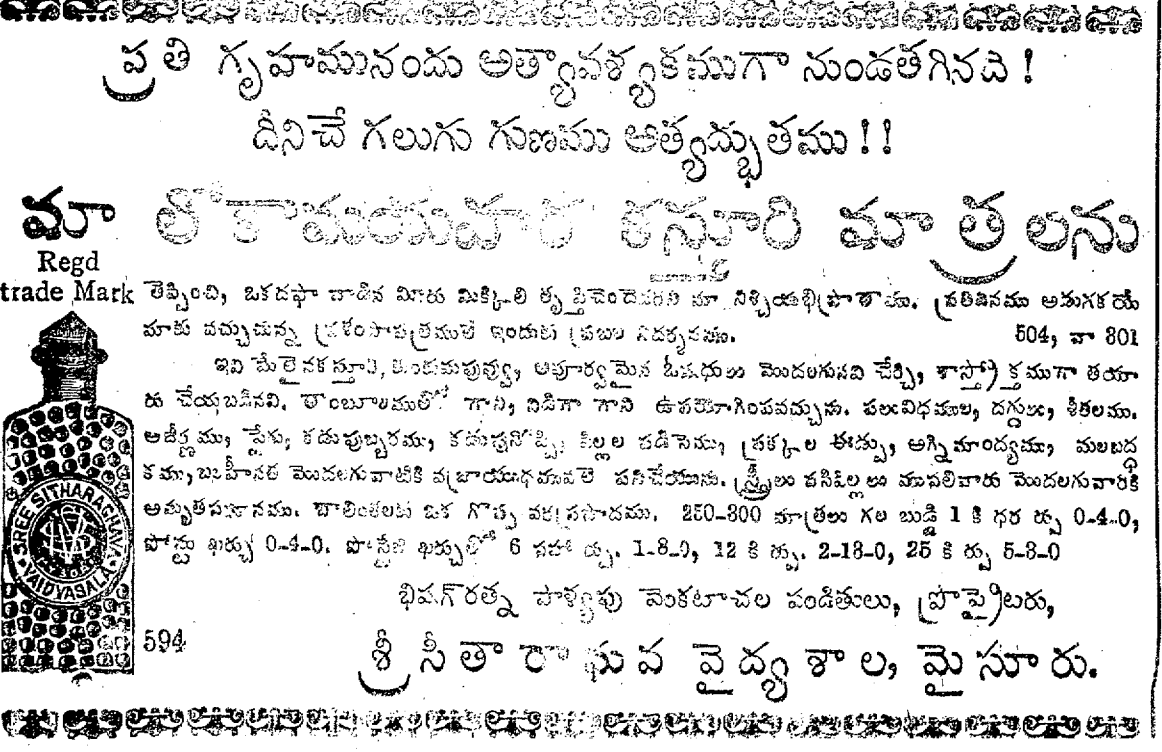 ప్రతి గృహమునందు అత్యావశ్యకముగా నుండతగినది !
దీనిచే గలుగు గుణము అత్యద్భుతము !!
మా లోకామయహర కస్తూరి మాత్రలను
Regd
trade Mark
తెప్పించి, ఒకదఫా వాడిన మీరు మిక్కిలి తృప్తిచెందెదరని మా నిశ్చయాభిప్రాయము. ప్రతిదినము అడుగకయే
మాకు వచ్చుచున్న ప్రశంసాపత్రములే ఇందుకు ప్రబల నిదర్శనము. 504, వా 801
ఇవి మేలైనకస్తూరి, కుంకుమపువ్వు, అపూర్వమైన ఓషధులు మొదలగునవి చేర్చి, శాస్త్రోక్తముగా తయా
రు చేయబడినవి. తాంబూలముతో గాని, నిడిగా గాని ఉపయోగింపవచ్చును. పలువిధముల, దగ్గులు, శీతలము.
అజీర్ణము, ప్లేగు, కడుపుబ్బరము, కడుపునొప్పి, పిల్లల పడిసెము, ప్రక్కల ఈడ్పు, అగ్నిమాంద్యము, మలబద్ధ
కము, బలహీనత మొదలగువాటికి వజ్రాయుధమువలె పనిచేయును. స్త్రీలు పసిపిల్లలు ముసలివారు మొదలగువారికి
అమృతసమానము. బాలింతలకు ఒక గొప్ప వరప్రసాదము. 250-300 మాత్రలు గల బుడ్డి 1 కి ధర రు 0-4-0,
పోస్టు ఖర్చు 0-4-0. పోస్టేజి ఖర్చుతో 6 సహా రు. 1-8-0, 12 కి రు. 2-13-0, 25 కి రు 5-8-0
భిషగ్రత్న పాళ్యపు వెంకటాచల పండితులు, ప్రొప్రైటరు,
SREE SITHARAGHAVA
VAIDYASALA
594
శ్రీ సీతా రాఘవ వైద్య శాల, మైసూరు.